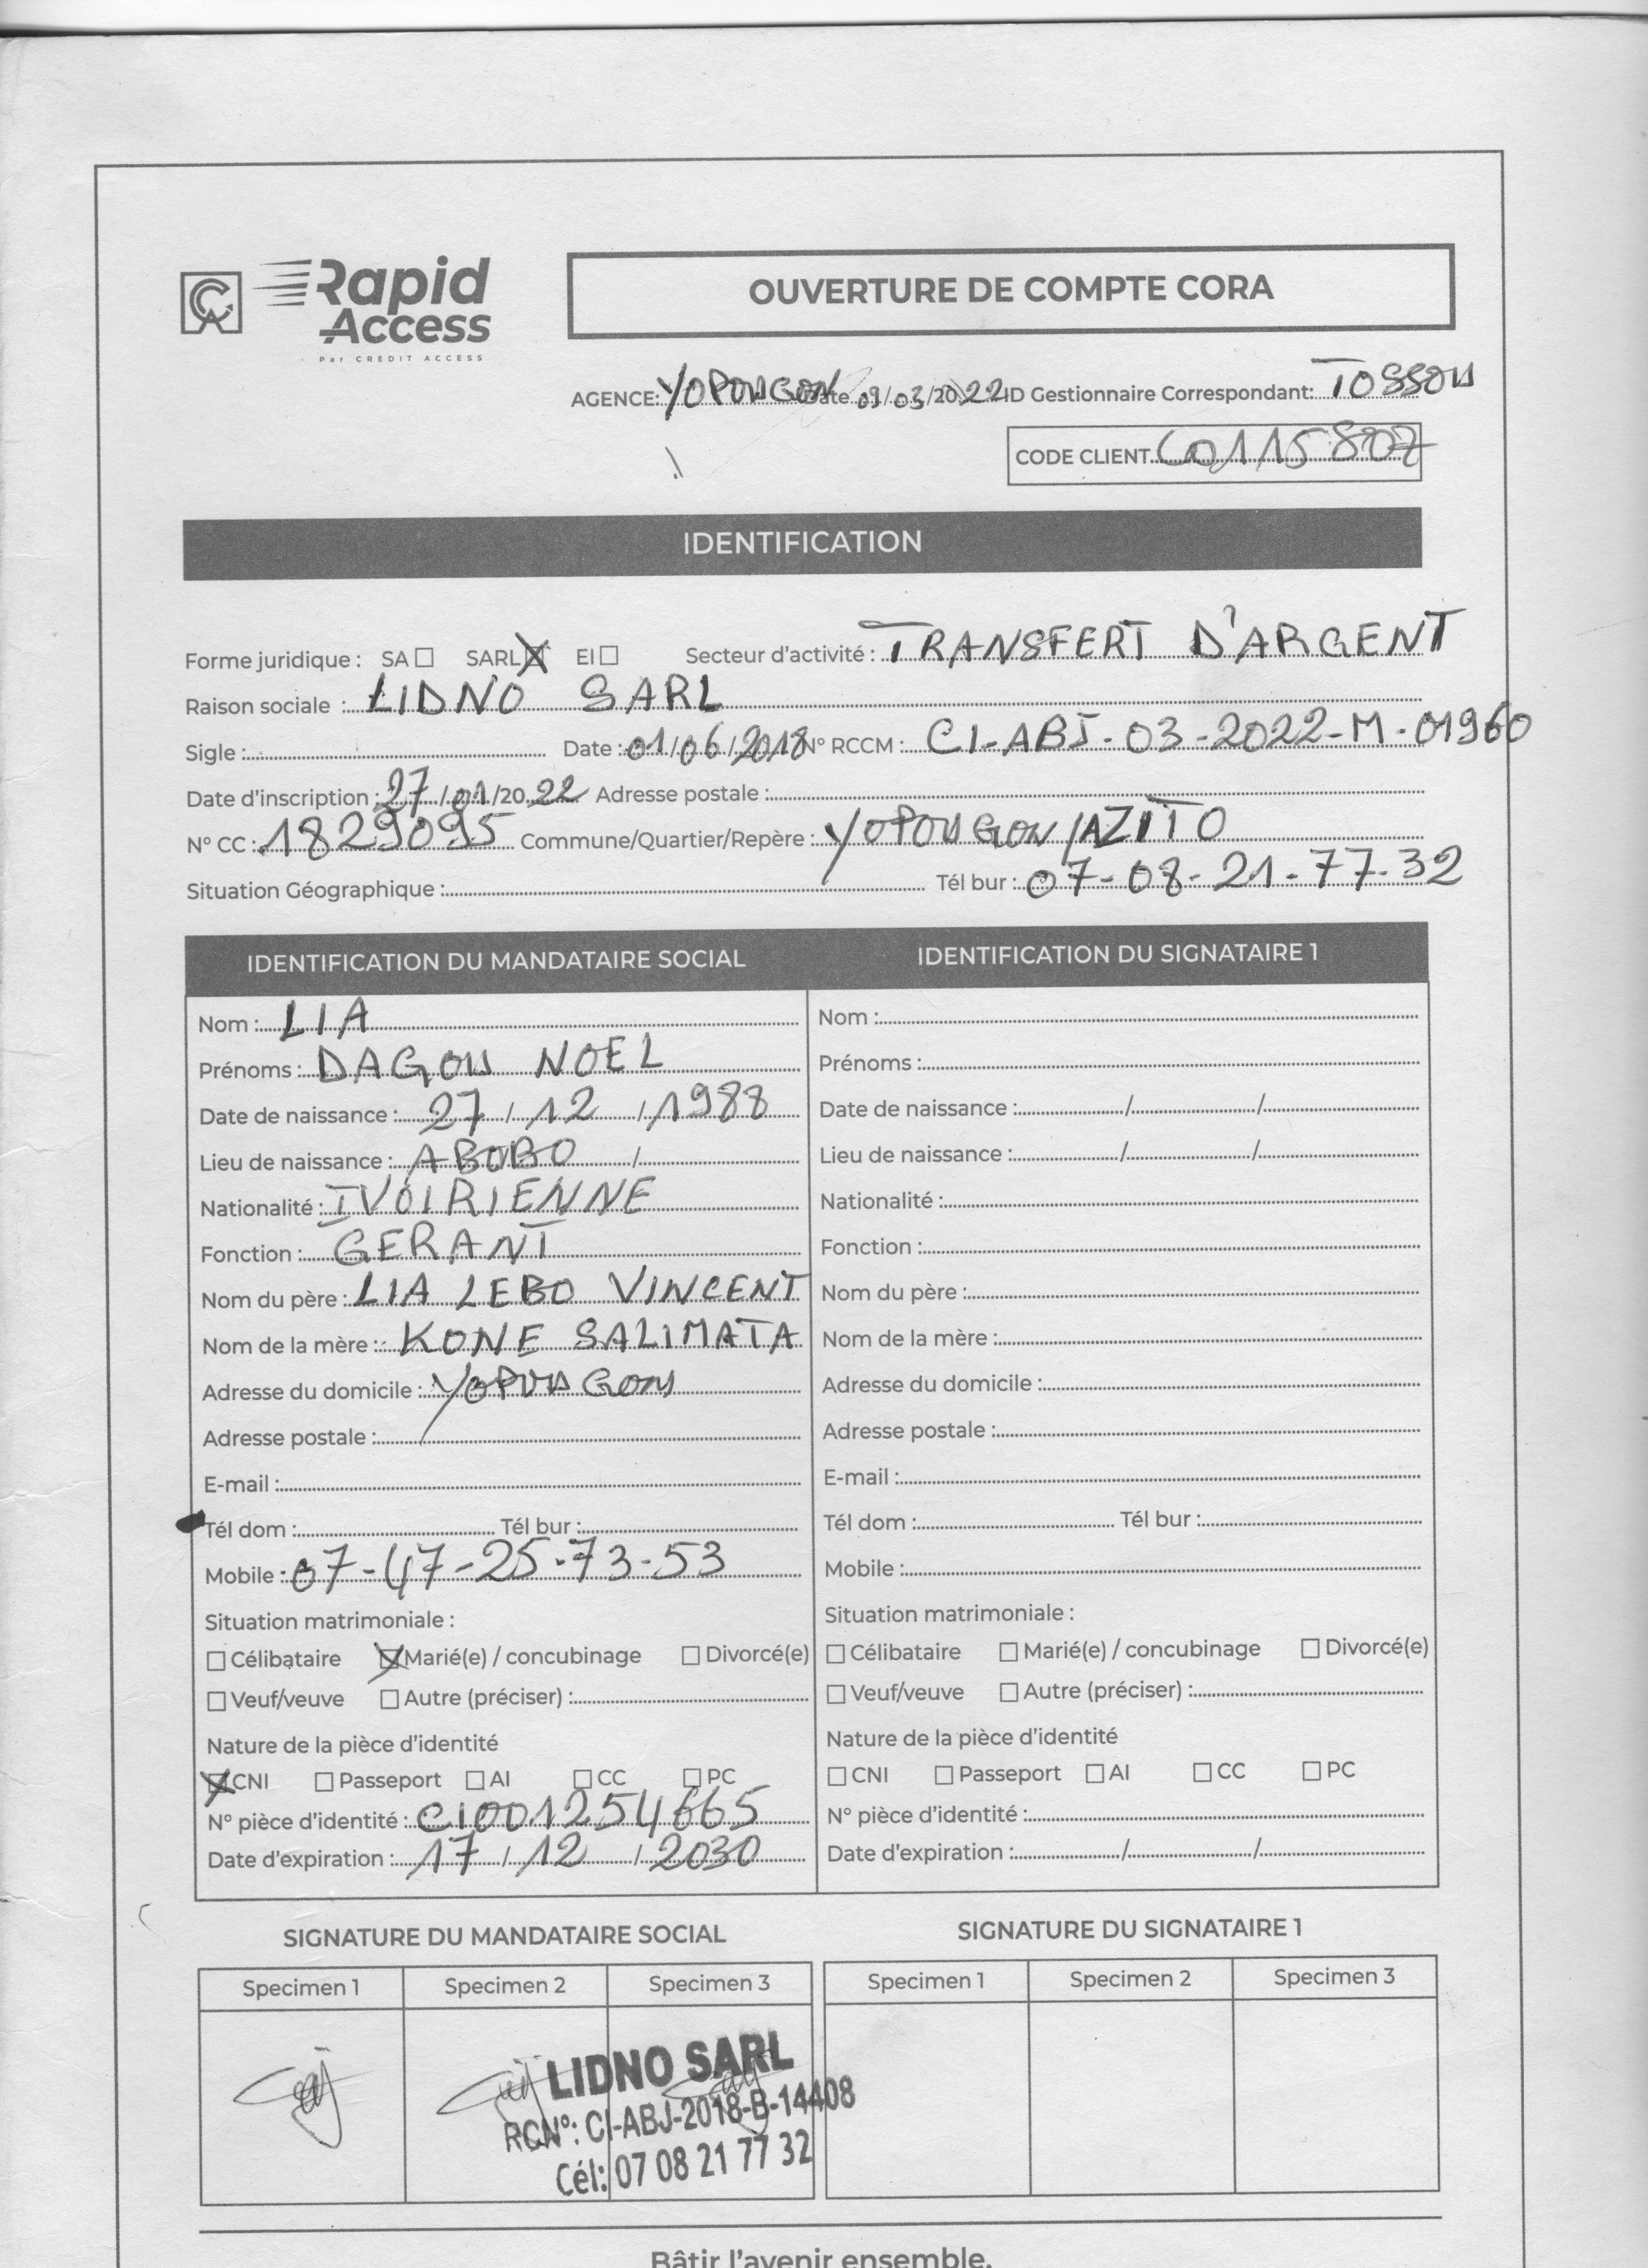 Rapid
Access
Par CREDIT ACCESS
OUVERTURE DE COMPTE CORA
AGENCE: YOPOUGON Date 09/03/2022 ID Gestionnaire Correspondant: TOSSOU
CODE CLIENT C0115807
IDENTIFICATION
Forme juridique : SA ☐ SARL ☒ EI ☐ Secteur d'activité : TRANSFERT D'ARGENT
Raison sociale : LIDNO SARL
Sigle : Date : 01/06/2018 N° RCCM : CI-ABJ-03-2022-M-01960
Date d'inscription : 27/01/2022 Adresse postale :
N° CC : 1829095 Commune/Quartier/Repère : YOPOUGON/AZITO
Situation Géographique : Tél bur : 07-08-21-77-32
IDENTIFICATION DU MANDATAIRE SOCIAL
Nom : LIA
Prénoms : DAGOU NOEL
Date de naissance : 27/12/1988
Lieu de naissance : ABOBO /
Nationalité : IVOIRIENNE
Fonction : GERANT
Nom du père : LIA LEBO VINCENT
Nom de la mère : KONE SALIMATA
Adresse du domicile : YOPOUGON
Adresse postale :
E-mail :
Tél dom : Tél bur :
Mobile : 07-47-25-73-53
Situation matrimoniale :
☐ Célibataire ☒ Marié(e) / concubinage ☐ Divorcé(e)
☐ Veuf/veuve ☐ Autre (préciser) :
Nature de la pièce d'identité
☒ CNI ☐ Passeport ☐ AI ☐ CC ☐ PC
N° pièce d'identité : CI001254665
Date d'expiration : 17/12/2030
IDENTIFICATION DU SIGNATAIRE 1
Nom :
Prénoms :
Date de naissance : / /
Lieu de naissance : / /
Nationalité :
Fonction :
Nom du père :
Nom de la mère :
Adresse du domicile :
Adresse postale :
E-mail :
Tél dom : Tél bur :
Mobile :
Situation matrimoniale :
☐ Célibataire ☐ Marié(e) / concubinage ☐ Divorcé(e)
☐ Veuf/veuve ☐ Autre (préciser) :
Nature de la pièce d'identité
☐ CNI ☐ Passeport ☐ AI ☐ CC ☐ PC
N° pièce d'identité :
Date d'expiration : / /
SIGNATURE DU MANDATAIRE SOCIAL
Specimen 1 Specimen 2 Specimen 3
LIDNO SARL
RCN°: CI-ABJ-2018-B-14408
Cél: 07 08 21 77 32
SIGNATURE DU SIGNATAIRE 1
Specimen 1 Specimen 2 Specimen 3
Bâtir l'avenir ensemble.